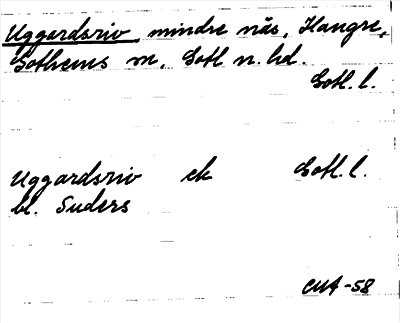 Uggardsriv, mindre näs, Hangre,
Gothems sn, Gotl n. hd.
Gotl. l.
Uggardsriv ek Gotl. l.
bl. Suders
CMA-58